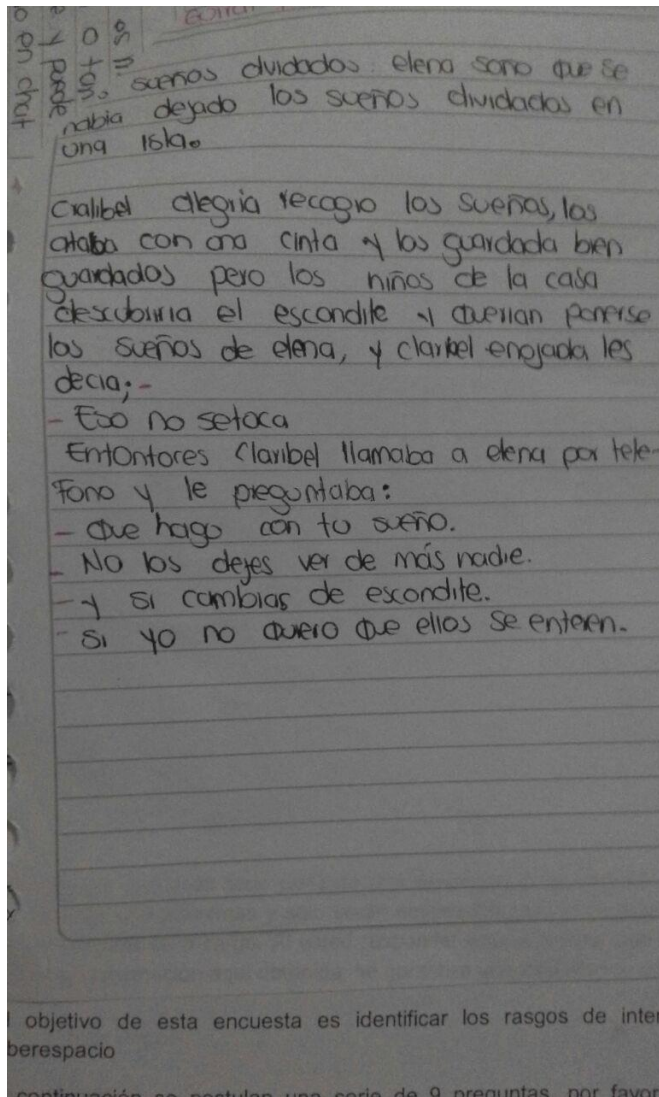 sueños dvidados elena soño que se
habia dejado los sueños dividados en
una isla.
Cralibel alegria recogio los sueños, los
ataba con una cinta y los guardada bien
guardados pero los niños de la casa
descubiria el escondite y querian ponerse
los sueños de elena, y claribel enojada les
decia; -
- Eso no setoca
Entontores Claribel llamaba a elena por tele-
Fono y le preguntaba:
- Que hago con tu sueño.
- No los dejes ver de más nadie.
- y si cambias de escondite.
- Si yo no quiero que ellos se enteren.
objetivo de esta encuesta es identificar los rasgos de inter
berespacio
continuación se postulan una serie de 9 preguntas, por favor